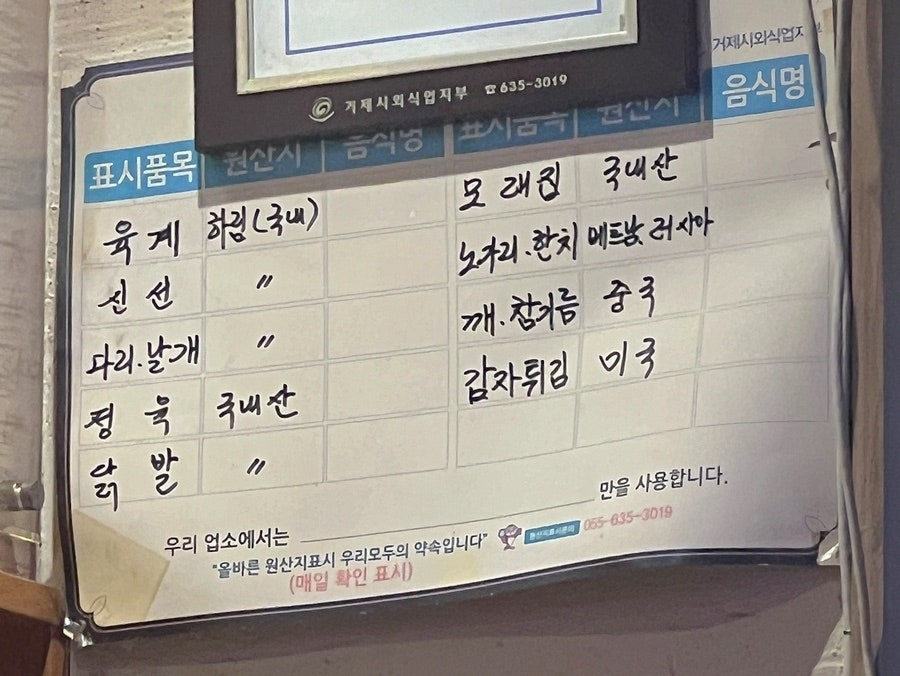 거제시외식업지부 ☎635-3019
거제시외식업지부
표시품목 원산지 음식명 표시품목 원산지 음식명
육계 하림(국내) 모래집 국내산
신선 〃 노가리.한치 베트남, 러시아
다리.날개 〃 깨.참기름 중국
정육 국내산 감자튀김 미국
닭발 〃
우리 업소에서는 만을 사용합니다.
"올바른 원산지표시 우리모두의 약속입니다" 원산지표시문의 055-635-3019
(매일 확인 표시)